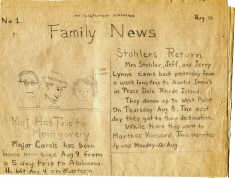 No 1
Aug 10
Family News
Maj. Has Trip to
Montgomery
Major Carols has been
home here since Aug 9 from
a 5 day trip to Alabama
Stohlers Return
Mrs Stohler, Jeff, and Jerry
Lynn came back yesterday from
a week long trip to Auntie Irma's
in Peace Dale Rhode Island.
They drove up to West Point
On Thursday Aug 8. The next
day they got to their destination.
While there they went to
Marthas Vineyard. They returned
by and Monday Aug